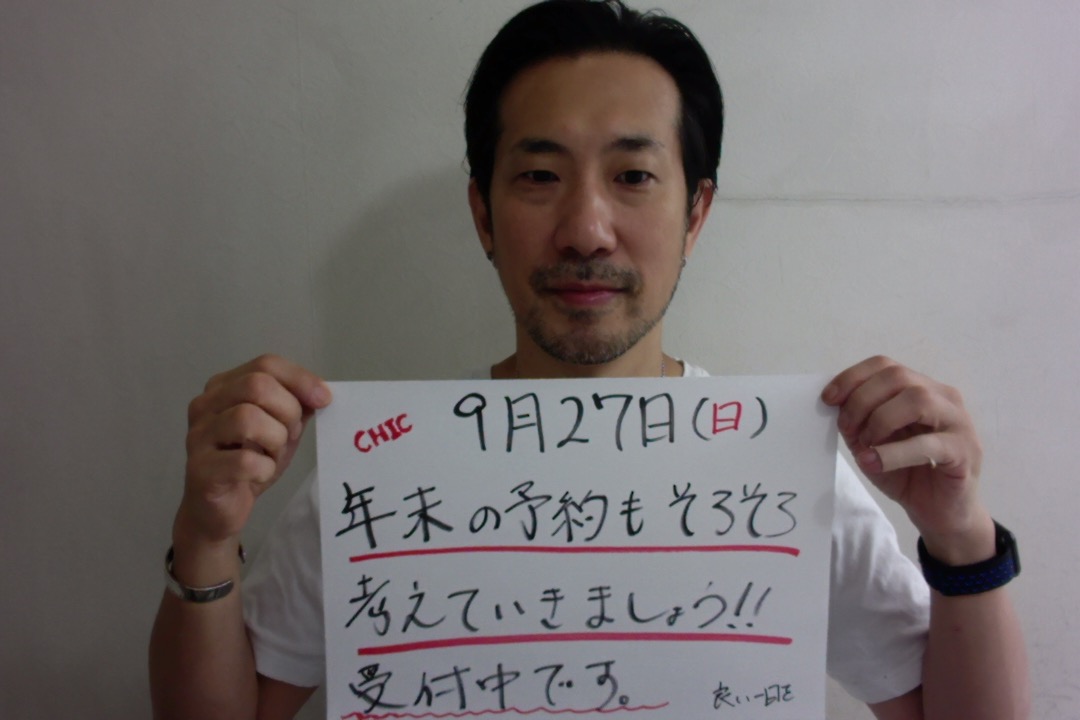 CHIC 9月27日(日)
年末の予約もそろそろ
考えていきましょう!!
受付中です。 良い一日を